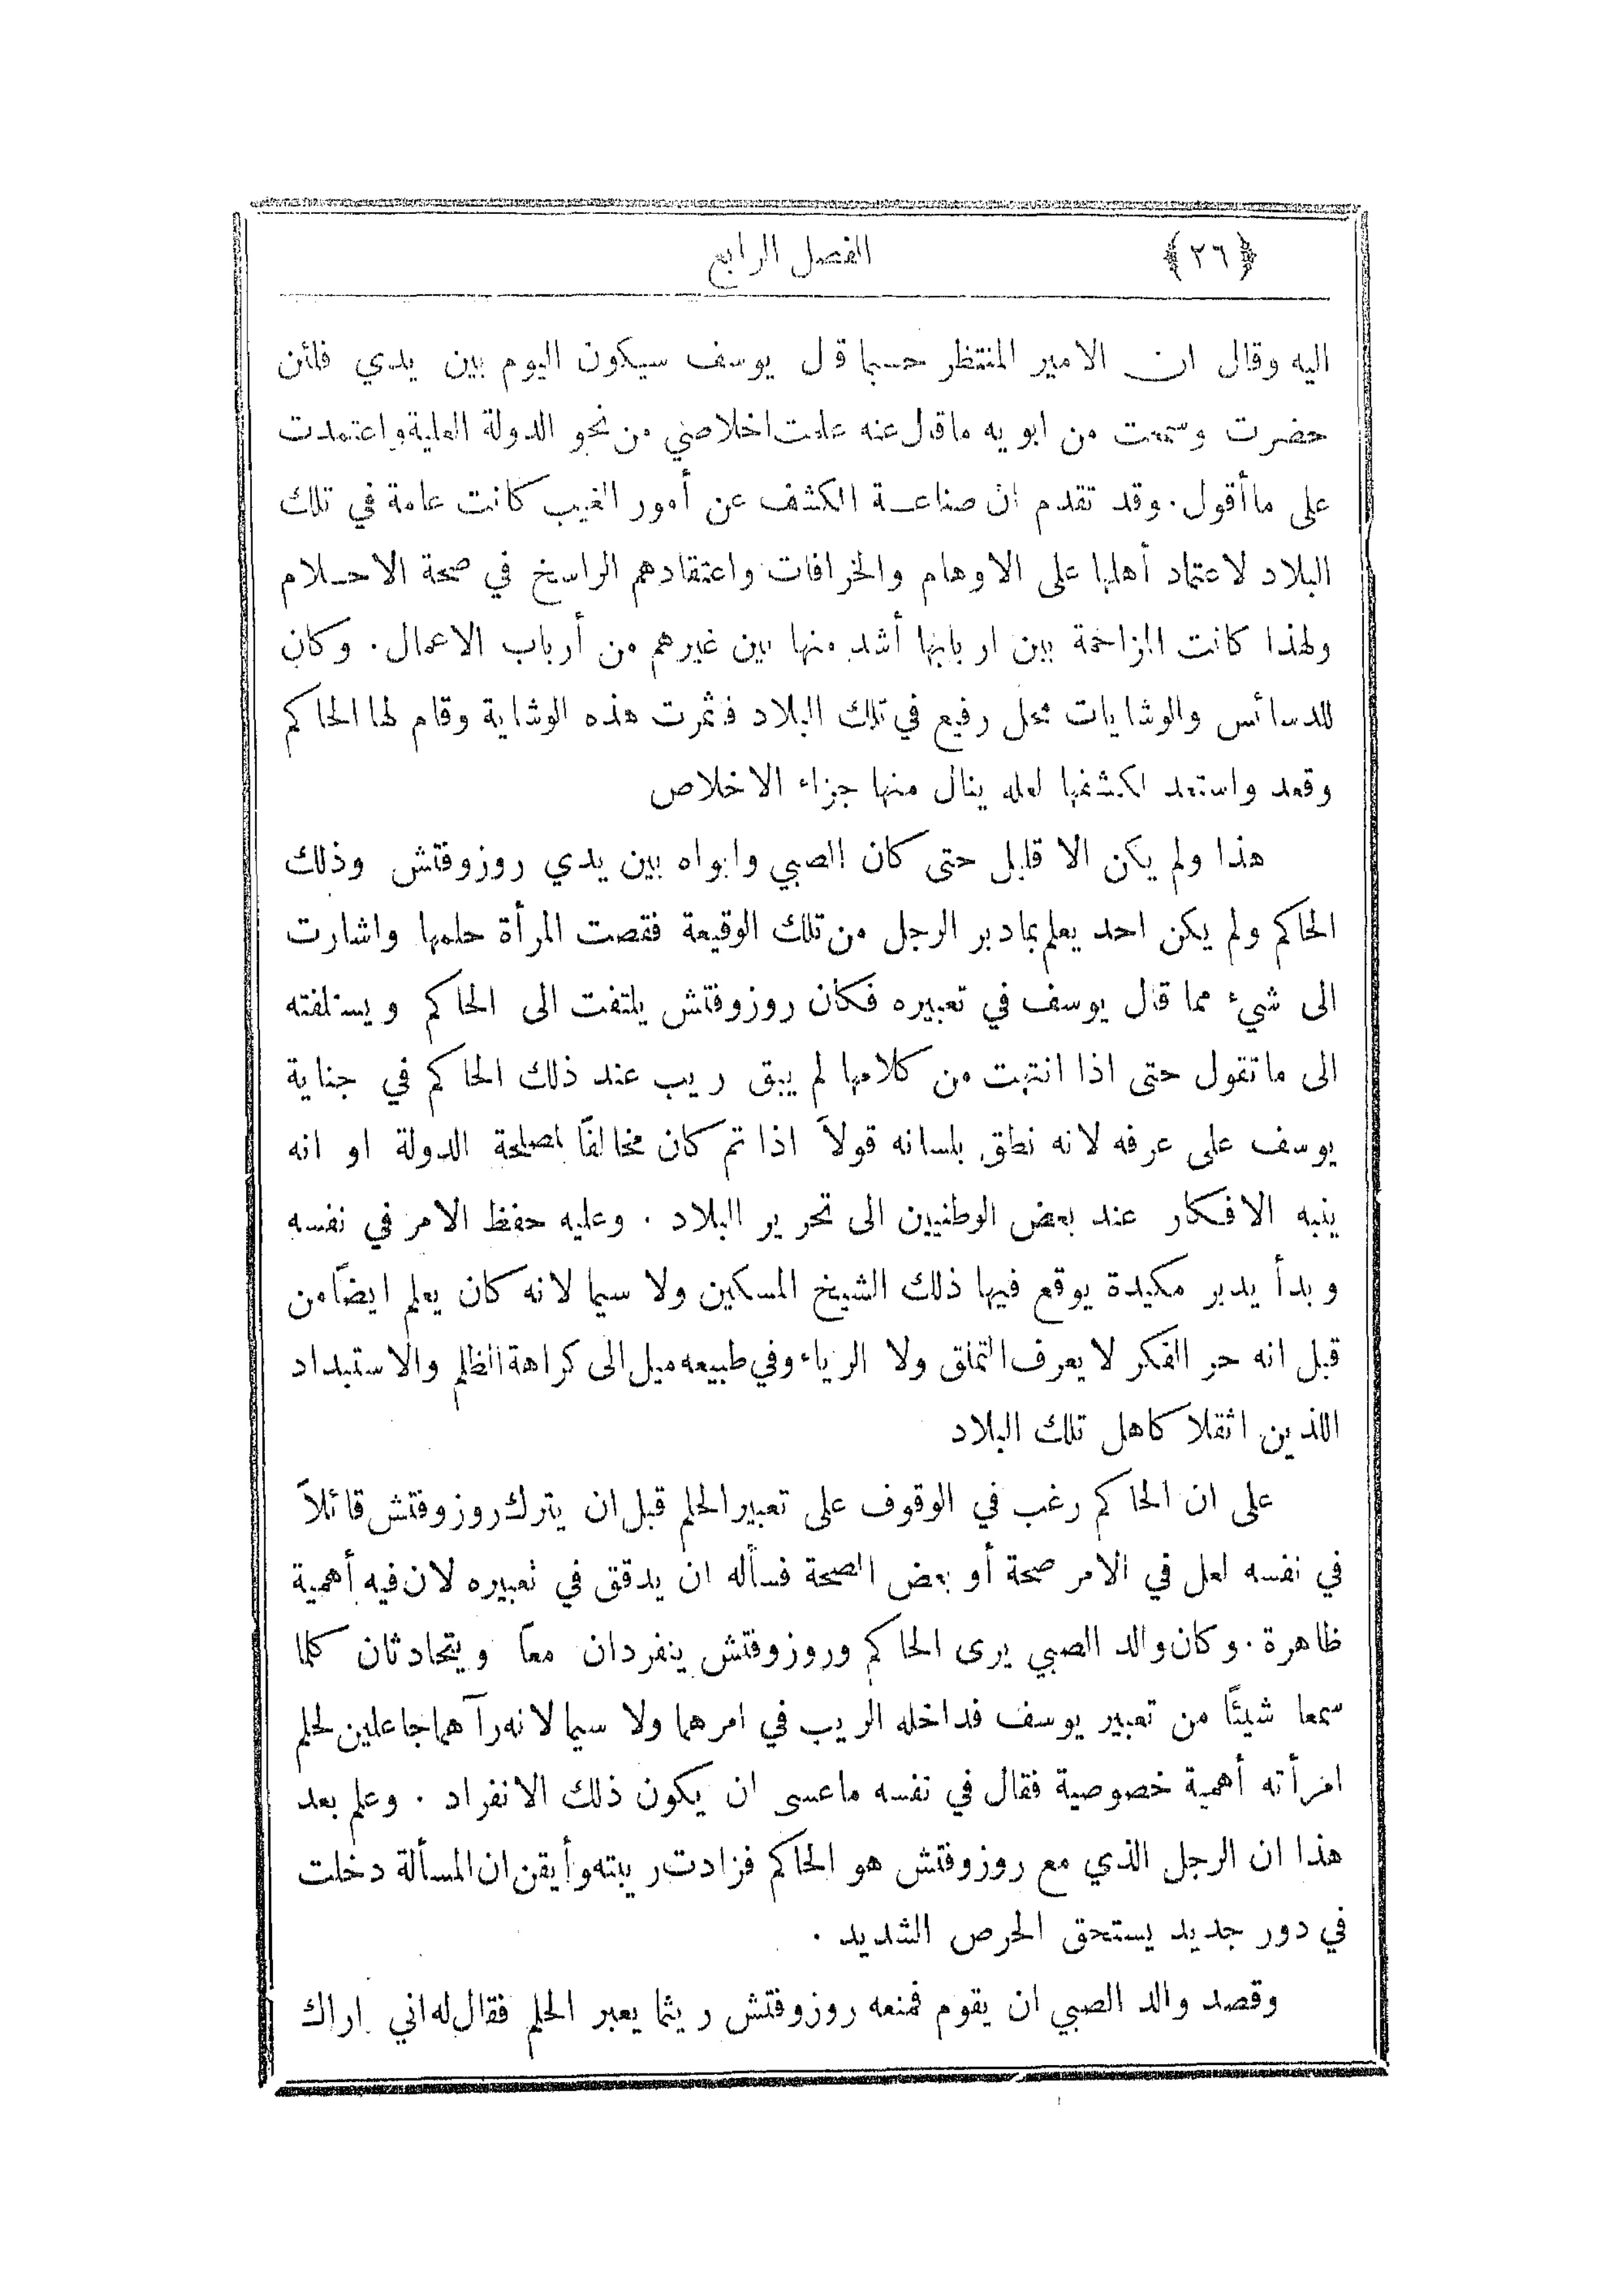 ﴿٢٦﴾ الفصل الرابع
اليه وقال ان الامير المنتظر حسبما قال يوسف سيكون اليوم بين يدي فلئن
حضرت وسمعت من ابويه ما قال عنه علمت اخلاصي من نحو الدولة العلية واعتمدت
على ما أقول . وقد تقدم ان صناعة الكشف عن أمور الغيب كانت عامة في تلك
البلاد لاعتماد أهلها على الاوهام والخرافات واعتقادهم الراسخ في صحة الاحلام
ولهذا كانت المزاحمة بين اربابها أشد منها بين غيرهم من أرباب الاعمال . وكان
للدسائس والوشايات محل رفيع في تلك البلاد فثمرت هذه الوشاية وقام لها الحاكم
وقعد واستعد لكشفها لعله ينال منها جزاء الاخلاص
هذا ولم يكن الا قليل حتى كان الصبي وابواه بين يدي روزوفتش وذلك
الحاكم ولم يكن احد يعلم بما دبر الرجل من تلك الوقيعة فقصت المرأة حلمها واشارت
الى شيء مما قال يوسف في تعبيره فكان روزوفتش يلتفت الى الحاكم ويستلفته
الى ما تقول حتى اذا انتهت من كلامها لم يبق ريب عند ذلك الحاكم في جناية
يوسف على عرفه لانه نطق بلسانه قولاً اذا تم كان مخالفًا لمصلحة الدولة او انه
ينبه الافكار عند بعض الوطنيين الى تحرير البلاد . وعليه حفظ الامر في نفسه
وبدأ يدبر مكيدة يوقع فيها ذلك الشيخ المسكين ولا سيما لانه كان يعلم ايضًا من
قبل انه حر الفكر لا يعرف التملق ولا الرياء وفي طبيعه ميل الى كراهة الظلم والاستبداد
اللذين اثقلا كاهل تلك البلاد
على ان الحاكم رغب في الوقوف على تعبير الحلم قبل ان يترك روزوفتش قائلاً
في نفسه لعل في الامر صحة أو بعض الصحة فسأله ان يدقق في تعبيره لان فيه أهمية
ظاهرة . وكان والد الصبي يرى الحاكم وروزوفتش ينفردان معًا ويتحادثان كلما
سمعا شيئًا من تعبير يوسف فداخله الريب في امرهما ولا سيما لانه رآهما جاعلين لحلم
امرأته أهمية خصوصية فقال في نفسه ما عسى ان يكون ذلك الانفراد . وعلم بعد
هذا ان الرجل الذي مع روزوفتش هو الحاكم فزادت ريبته وأيقن ان المسألة دخلت
في دور جديد يستحق الحرص الشديد .
وقصد والد الصبي ان يقوم فمنعه روزوفتش ريثما يعبر الحلم فقال له اني اراك